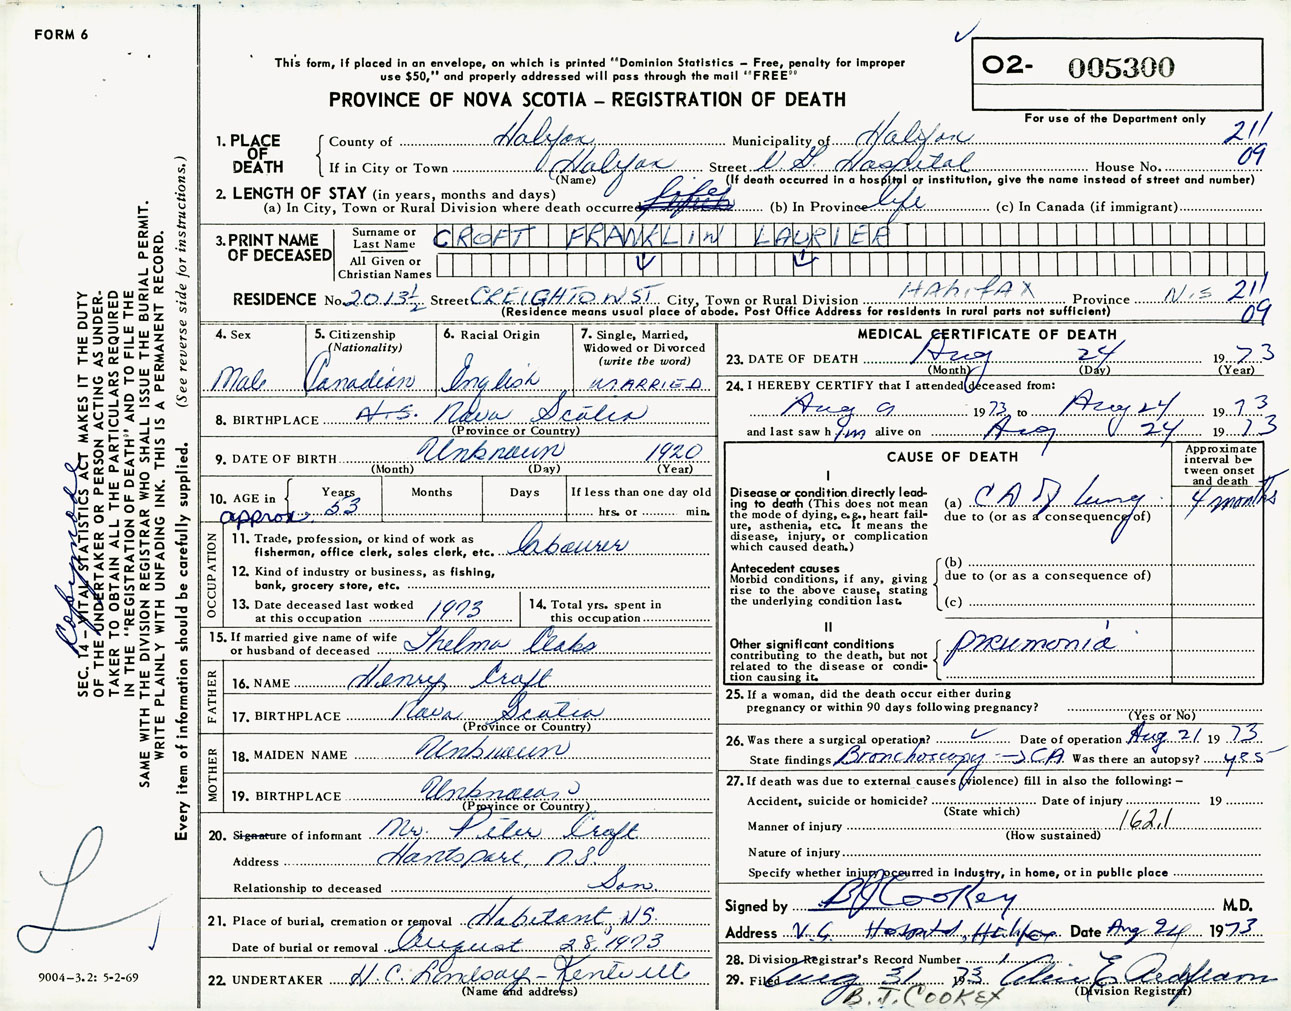 FORM 6
This form, if placed in an envelope, on which is printed "Dominion Statistics – Free, penalty for improper
use $50," and properly addressed will pass through the mail "FREE"
PROVINCE OF NOVA SCOTIA – REGISTRATION OF DEATH
O2- 005300
For use of the Department only
211
09
1. PLACE OF DEATH
County of Halifax Municipality of Halifax
If in City or Town Halifax Street V.G. Hospital House No.
(Name) (If death occurred in a hospital or institution, give the name instead of street and number)
2. LENGTH OF STAY (in years, months and days)
(a) In City, Town or Rural Division where death occurred life (b) In Province life (c) In Canada (if immigrant)
3. PRINT NAME OF DECEASED
Surname or Last Name CROFT FRANKLIN LAURIER
All Given or Christian Names
RESIDENCE No. 2013½ Street CREIGHTON ST City, Town or Rural Division HALIFAX Province N.S 211
09
(Residence means usual place of abode. Post Office Address for residents in rural parts not sufficient)
4. Sex
Male
5. Citizenship (Nationality)
Canadian
6. Racial Origin
English
7. Single, Married, Widowed or Divorced (write the word)
MARRIED
8. BIRTHPLACE N.S. Nova Scotia
(Province or Country)
9. DATE OF BIRTH Unknown 1920
(Month) (Day) (Year)
10. AGE in approx. Years 53 Months Days If less than one day old
hrs. or min.
OCCUPATION
11. Trade, profession, or kind of work as
fisherman, office clerk, sales clerk, etc. labourer
12. Kind of industry or business, as fishing,
bank, grocery store, etc.
13. Date deceased last worked
at this occupation 1973
14. Total yrs. spent in
this occupation
15. If married give name of wife
or husband of deceased Thelma
FATHER
16. NAME Henry Croft
17. BIRTHPLACE Nova Scotia
(Province or Country)
MOTHER
18. MAIDEN NAME Unknown
19. BIRTHPLACE Unknown
(Province or Country)
20. Signature of informant Mr. Peter Croft
Address Hantsport, N.S
Relationship to deceased Son
21. Place of burial, cremation or removal Habitant, NS.
Date of burial or removal August 28, 1973
22. UNDERTAKER H.C. Lindsay – Kentville
(Name and address)
MEDICAL CERTIFICATE OF DEATH
23. DATE OF DEATH Aug 24 1973
(Month) (Day) (Year)
24. I HEREBY CERTIFY that I attended deceased from:
Aug 9 1973 to Aug 24 1973
and last saw him alive on Aug 24 1973
CAUSE OF DEATH
Approximate interval between onset and death
I
Disease or condition directly leading to death (This does not
mean the mode of dying, e.g., heart failure, asthenia, etc. It means the
disease, injury, or complication
which caused death.)
(a) CA of lung 4 months
due to (or as a consequence of)
Antecedent causes
Morbid conditions, if any, giving
rise to the above cause, stating
the underlying condition last.
(b)
due to (or as a consequence of)
(c)
II
Other significant conditions
contributing to the death, but not
related to the disease or condition causing it.
pneumonia
25. If a woman, did the death occur either during
pregnancy or within 90 days following pregnancy?
(Yes or No)
26. Was there a surgical operation? ✓ Date of operation Aug 21 1973
State findings Bronchoscopy → CA Was there an autopsy? yes
27. If death was due to external causes (violence) fill in also the following: –
Accident, suicide or homicide? Date of injury 19
(State which)
Manner of injury 162.1
(How sustained)
Nature of injury
Specify whether injury occurred in industry, in home, or in public place
Signed by BJ Cookey M.D.
Address V.G. Hospital, Halifax Date Aug 24 1973
28. Division Registrar's Record Number
29. Filed Aug 31 1973
(Division Registrar)
B. J. COOKEY
SEC. 14 – VITAL STATISTICS ACT MAKES IT THE DUTY
OF THE UNDERTAKER OR PERSON ACTING AS UNDER-
TAKER TO OBTAIN ALL THE PARTICULARS REQUIRED
IN THE "REGISTRATION OF DEATH" AND TO FILE THE
SAME WITH THE DIVISION REGISTRAR WHO SHALL ISSUE THE BURIAL PERMIT.
WRITE PLAINLY WITH UNFADING INK. THIS IS A PERMANENT RECORD.
Every item of information should be carefully supplied. (See reverse side for instructions.)
9004-3.2: 5-2-69